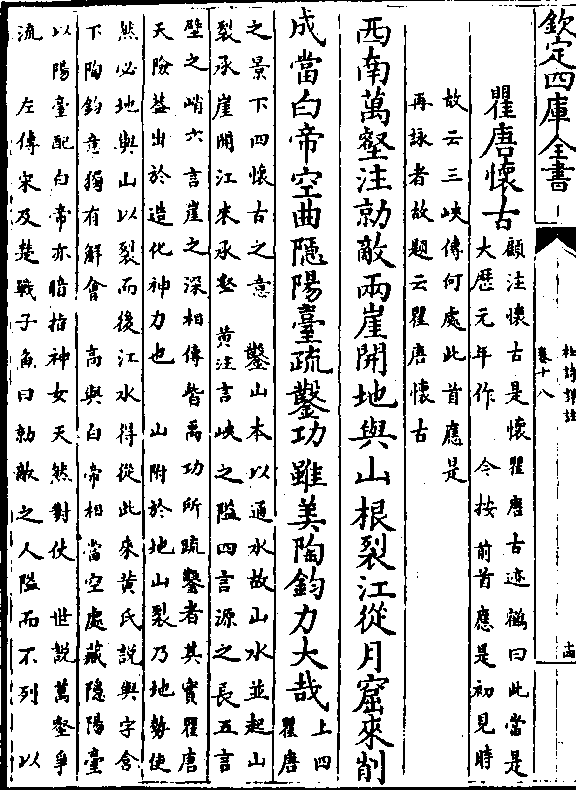 欽定四庫全書
杜詩詳註
卷十八
瞿唐懷古
顧注懷古是懷瞿唐古迹鶴曰此當是
大歷元年作 今按前首應是初見時
故云三峽傳何處此首應是
再詠者故題云瞿唐懷古
西南萬壑注勍敵兩崖開地與山根裂江從月窟來削
成當白帝空曲隱陽臺疏鑿功雖美陶鈞力大哉
上四
瞿唐
之景下四懷古之意 鑿山本以通水故山水並起山
裂承崖開江來承壑 黄注言峽之隘四言源之長五言
壁之峭六言崖之深相傳皆禹功所疏鑿者其實瞿唐
天險蓋出於造化神力也 山附於地山裂乃地勢使
然必地與山以裂而後江水得從此來黄氏說與字含
下陶鈞意獨有解會 高與白帝相當空處藏隱陽臺
以陽臺配白帝亦暗指神女天然對使 世說萬壑爭
流 左傳宋及楚戰子魚曰勍敵之人隘而不列 以